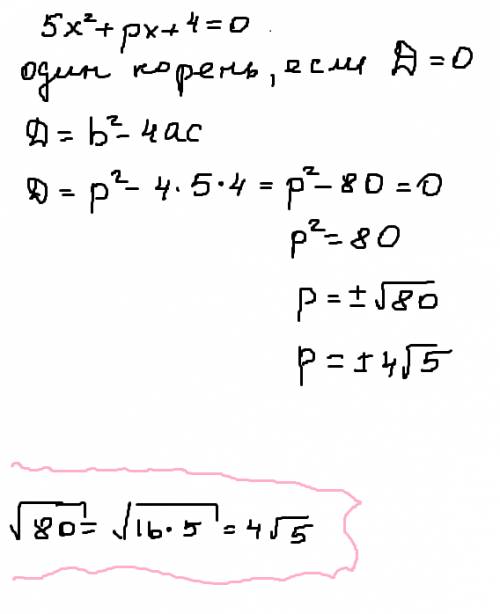 5x²+px+4=0
один корень, если D=0
D=b²-4ac
D=p²-4·5·4=p²-80=0
p²=80
p=±√80
p=±4√5
√80=√16·5=4√5